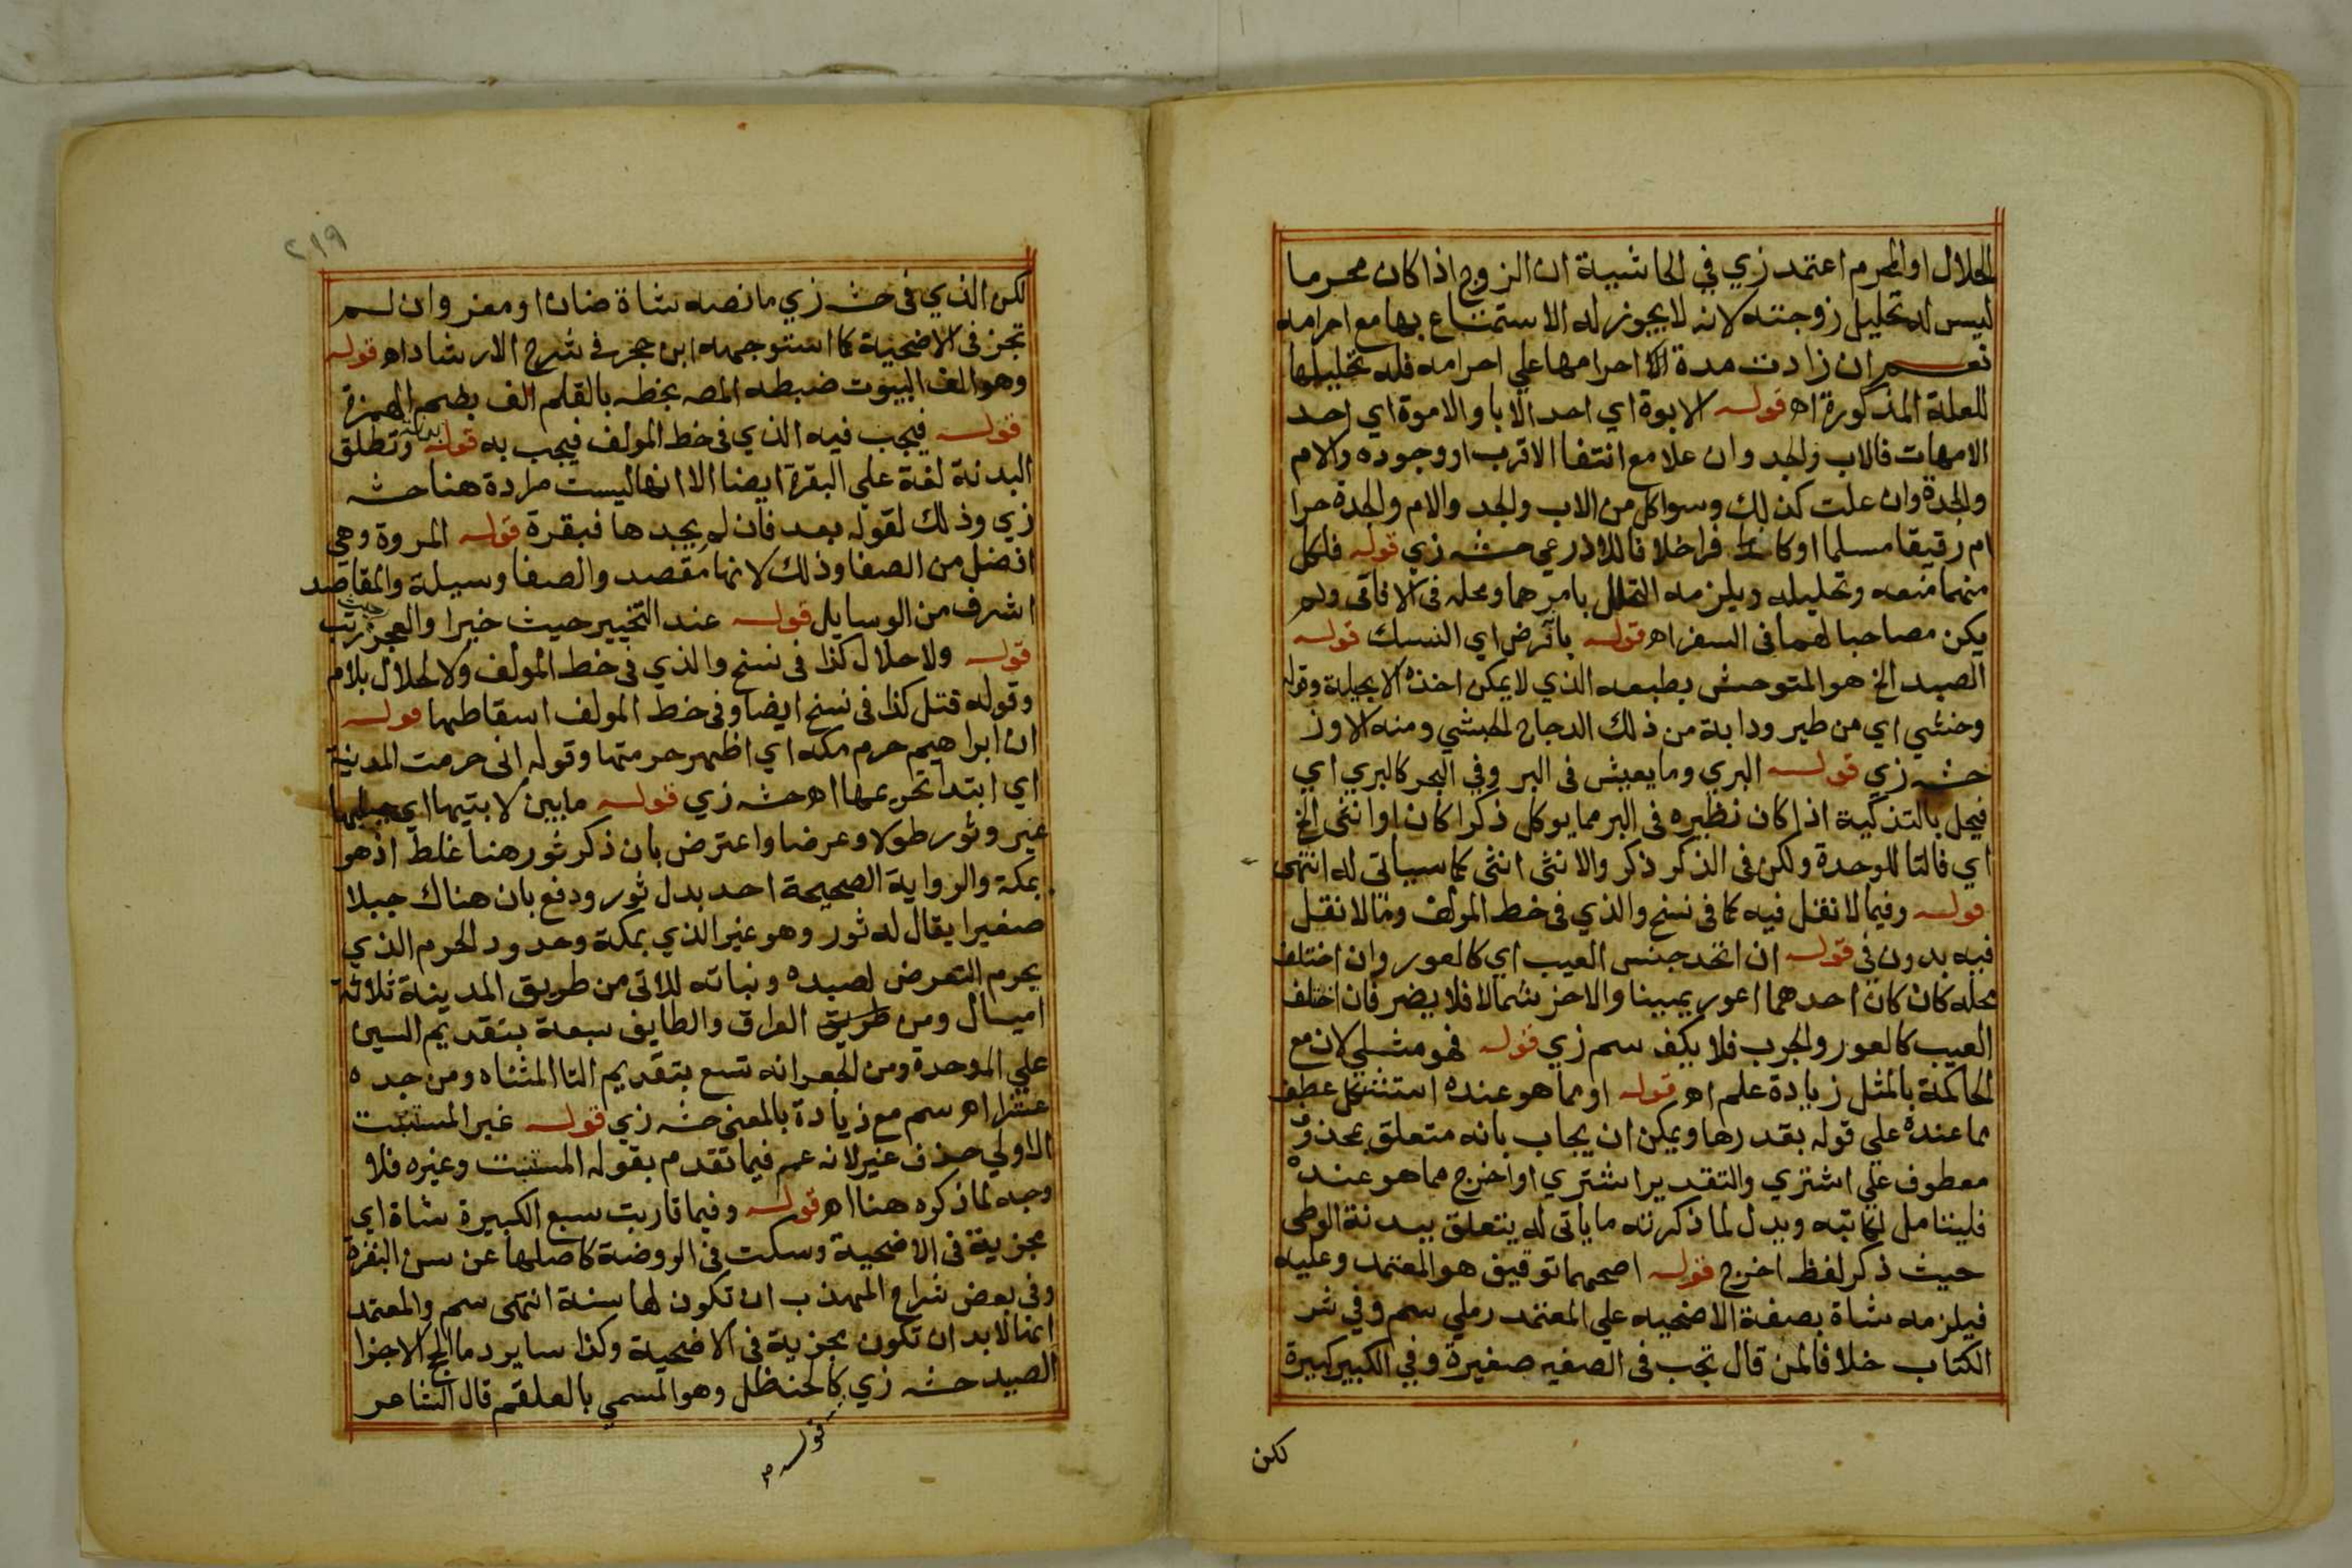 الحلال او المحرم اعتمد زي في الحاشية ان الزوج اذا كان محرما
ليس له تحليل زوجته لانه لا يجوز له الاستمتاع بها مع احرامه
نعم ان زادت مدة احرامها علي احرامه فله تحليلها
للعلة المذكورة اه قوله الابوة اي احد الابا والاموة اي احد
الامهات فالاب والجد وان علا مع انتفا الاقرب او وجوده والام
والجدة وان علت كذلك وسوا كل من الاب والجد والام والجدة حرا
ام رقيقا مسلما او كافرا خلافا للاذرعي حشه زي قوله فلكل
منهما منعه وتحليله ويلزمه التحلل بامرهما ومحله في الافاقى ولم
يكن مصاحبا لهما فى السفر اه قوله بالفرض اي النسك قوله
الصيد الخ هو المتوحش بطبعه الذي لا يمكن اخذه الا بحيلة وقوله
وحشي اي من طير ودابة من ذلك الدجاج الحبشي ومنه الاوز
حشه زي قوله البري وما يعيش فى البر وفي البحر كالبري اي
فيحل بالتذكية اذا كان نظيره فى البر مما يوكل ذكرا كان او انثى الخ
اي فالتا للوحدة ولكن فى الذكر ذكر والانثى انثى كما سياتى له انتهى
قوله وفيما لا نقل فيه كما فى نسخ والذي فى خط المولف ومالا نقل
فيه بدون في قوله ان اتحد جنس العيب اي كالعور وان اختلف
محله كان كان احدهما اعور يمينا والاخر شمالا فلا يضر فان اختلف
العيب كالعور والجرب فلا يكف سم زي قوله فهو مثلي لان مع
الحاكمة بالمثل زيادة علم اه قوله او مما هو عنده استشكل عطف
مما عنده علي قوله بقدرها ويمكن ان يجاب بانه متعلق بمحذوف
معطوف علي اشتري والتقدير اشتري او اخرج مما هو عنده
فليتامل لكاتبه ويدل لما ذكرته ما ياتى له يتعلق ببدنة الوطى
حيث ذكر لفظ اخرج قوله اصحهما توقيف هو المعتمد وعليه
فيلزمه شاة بصفة الاضحيه علي المعتمد رملي سم وفي شر
الكتاب خلافا لمن قال تجب فى الصغير صغيرة وفي الكبير كبيرة
لكن
٢١٩
لكن الذي فى حشه زي ما نصه شاة ضان او معز وان لم
تجز فى الاضحية كما استوجهه ابن حجر في شرح الارشاد اه قوله
وهو الف البيوت ضبطه المصه بخطه بالقلم الف بضم الهمزة
قوله فيجب فيه الذي فى خط المولف فيجب به قوله بدنة وتطلق
البدنة لغة علي البقرة ايضا الا انها ليست مرادة هنا حشه
زي وذلك لقوله بعد فان لم يجدها فبقرة قوله المروة وهي
افضل من الصفا وذلك لانها مقصد والصفا وسيلة والمقاصد
اشرف من الوسايل قوله عند التخيير حيث خيرا والعجز حيث رتب
قوله ولا حلال كذا فى نسخ والذي فى خط المولف ولا لحلال بلام
وقوله قتل كذا فى نسخ ايضا وفى خط المولف اسقاطها قوله
ان ابراهيم حرم مكه اي اظهر حرمتها وقوله انى حرمت المدينة
اي ابتدا تحريمها اه حشه زي قوله ما بين لابتيها اي جبليها
عير وثور طولا وعرضا واعترض بان ذكر ثور هنا غلط اذ هو
بمكة والرواية الصحيحة احد بدل ثور ودفع بان هناك جبلا
صغيرا يقال له ثور وهو غير الذي بمكة وحدود الحرم الذي
يحرم التعرض لصيده ونباته للاتى من طريق المدينة ثلاثة
اميال ومن طريق العراق والطايف سبعة بتقديم السين
علي الموحدة ومن الجعرانه تسع بتقديم التا المثناه ومن جده
عشرا اه سم مع زيادة بالمعنى حشه زي قوله غير المستنبت
الاولي حذف غير لانه عمم فيما تقدم بقوله المستنبت وغيره فلا
وجه لما ذكره هنا اه قوله وفيما قاربت سبع الكبيرة شاة اي
مجزية فى الاضحية وسكت فى الروضة كاصلها عن سن البقرة
وفى بعض شراح المهذب ان تكون لها سنة انتهى سم والمعتمد
انها لا بد ان تكون مجزية فى الاضحية وكذا ساير دما الحج الا جزا
الصيد حشه زي كالحنظل وهو المسمي بالعلقم قال الشاعر
قوله